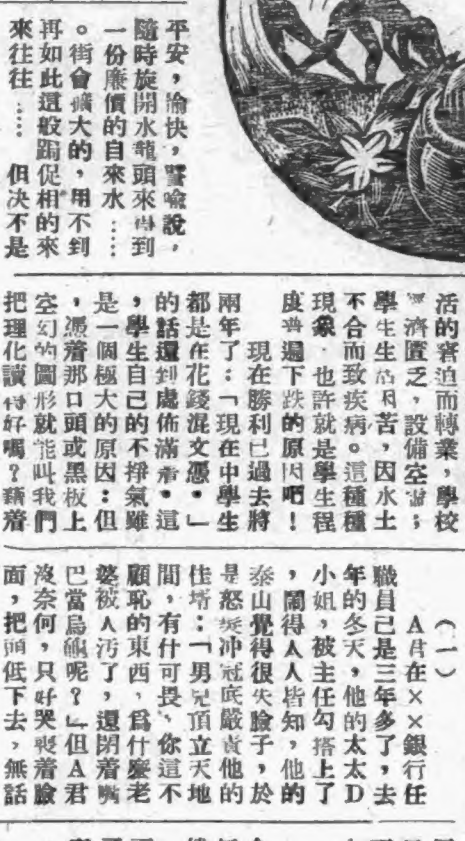 平安，愉快，譬喻說，
隨時旋開水龍頭來得到
一份廉價的自來水……
。街會擴大的，用不到
再如此這般跼促相的來
來往往……　但决不是
活的窘迫而轉業，學校
經濟匱乏，設備空虛；
學生生活困苦，因水土
不合而致疾病。這種種
現象，也許就是學生程
度普遍下跌的原因吧！
現在勝利已過去將
兩年了：「現在中學生
都是在花錢混文憑。」
的話還到處佈滿着。這
，學生自己的不掙氣雖
是一個極大的原因：但
，憑着那口頭或黑板上
空幻的圖形就能叫我們
把理化讀得好嗎？藉着
（一）
A君在××銀行任
職員已是三年多了，去
年的冬天，他的太太D
小姐，被主任勾搭上了
，鬧得人人皆知，他的
泰山覺得很失臉子，於
是怒髮冲冠底嚴責他的
佳壻：「男兒頂立天地
間，有什可畏、你這不
顧恥的東西，爲什麼老
婆被人汚了，還閉着嘴
巴當烏龜呢？」但A君
沒奈何，只好哭喪着臉
面，把頭低下去，無話